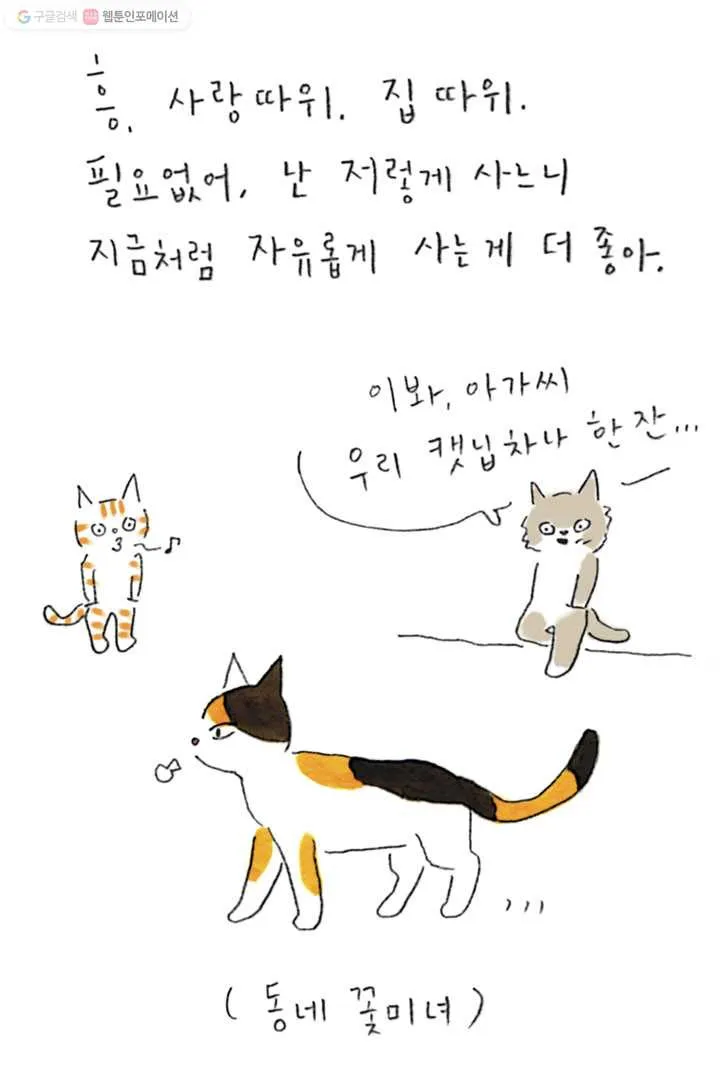 구글검색 웹툰인포메이션
흥, 사랑따위. 집 따위.
필요없어, 난 저렇게 사느니
지금처럼 자유롭게 사는게 더 좋아.
이봐, 아가씨
우리 캣닙차나 한 잔...
(동네 꽃미녀)